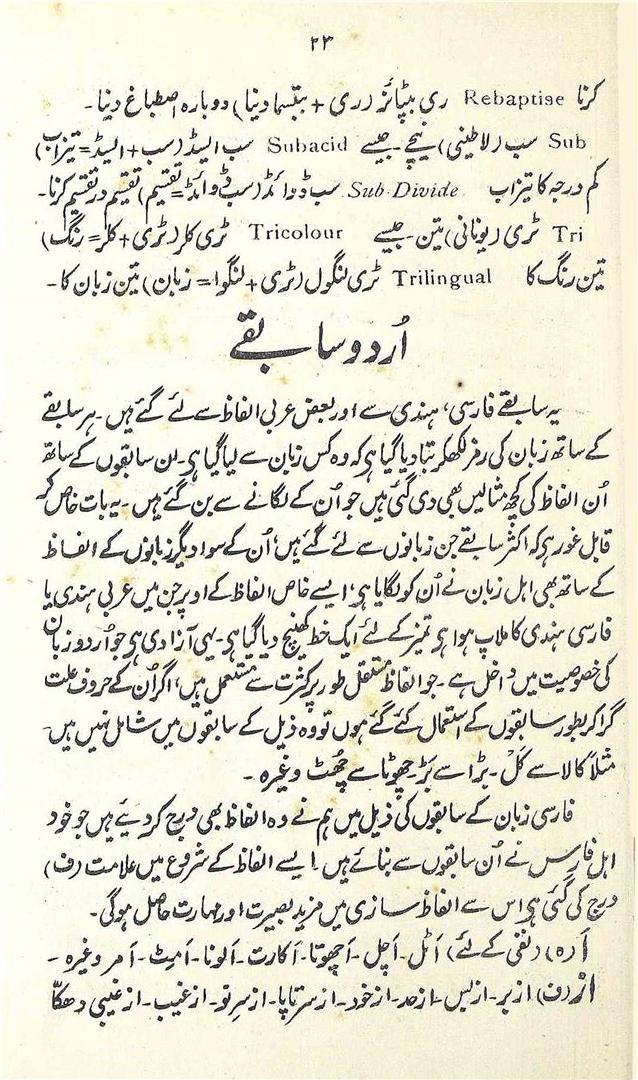 ۲۳
کرنا Rebaptise ری بپٹائز (ری + بپتسما دینا) دوبارہ اصطباغ دینا۔
Sub سب (لاطینی) نیچے۔ جیسے Subacid سب ایسڈ (سب + ایسڈ = تیزاب)
کم درجہ کا تیزاب Sub-Divide سب ڈوائڈ (سب ڈوائڈ = تقسیم) تقسیم در تقسیم کرنا۔
Tri ٹری (یونانی) تین۔ جیسے Tricolour ٹری کلر (ٹری + کلر = رنگ)
تین رنگ کا Trilingual ٹری لنگول (ٹری + لنگوا = زبان) تین زبان کا۔
اُردو سابقے
یہ سابقے فارسی، ہندی سے اور بعض عربی الفاظ سے لئے گئے ہیں۔ ہر سابقے
کے ساتھ زبان کی رمز لکھکر بتا دیا گیا ہی کہ وہ کس زبان سے لیا گیا ہی۔ ان سابقوں کے ساتھ
اُن الفاظ کی کچھ مثالیں بھی دی گئی ہیں جو اُن کے لگانے سے بن گئے ہیں۔ یہ بات خاص کر
قابل غور ہی کہ اکثر سابقے جن زبانوں سے لئے گئے ہیں، اُن کے سوا دیگر زبانوں کے الفاظ
کے ساتھ بھی اہل زبان نے اُن کو لگایا ہی، ایسے خاص الفاظ کے اوپر جن میں عربی ہندی یا
فارسی ہندی کا ملاپ ہوا ہی تمیز کے لئے ایک خط کھینچ دیا گیا ہی۔ یہی آزادی ہی جو اُردو زبان
کی خصوصیت میں داخل ہے۔ جو الفاظ مستقل طور پر کثرت سے مستعمل ہیں، اگر اُن کے حروف علت
گرا کر بطور سابقوں کے استعمال کئے گئے ہوں تو وہ ذیل کے سابقوں میں شامل نہیں ہیں۔
مثلاً کالا سے کَل۔ بڑا سے بَڑ۔ چھوٹا سے چھُٹ وغیرہ۔
فارسی زبان کے سابقوں کی ذیل میں ہم نے وہ الفاظ بھی درج کر دیے ہیں جو خود
اہل فارس نے اُن سابقوں سے بنائے ہیں۔ ایسے الفاظ کے شروع میں علامت (ف)
درج کی گئی ہی اس سے الفاظ سازی میں مزید بصیرت اور مہارت حاصل ہوگی۔
اَ (ہ) (نفی کے لئے) اَٹل۔ اَچل۔ اَچھوتا۔ اَکارت۔ اَلونا۔ اَمِٹ۔ اَمر وغیرہ۔
از (ف) از بر۔ از بس۔ از حد۔ از خود۔ از سرتاپا۔ از سرِ نو۔ از غیب۔ از غیبی دھکّا